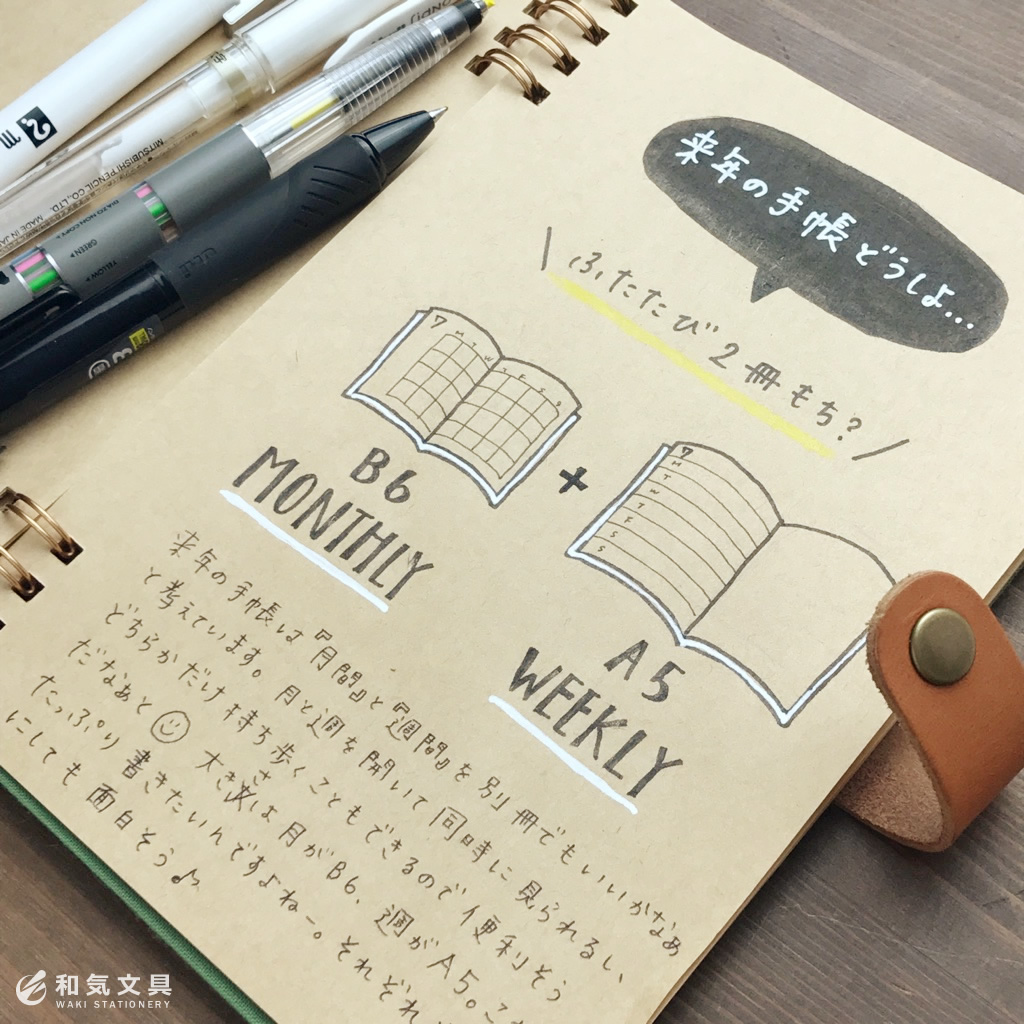 来年の手帳どうしよ…
\ ふたたび2冊もち? /
7
M T W T F S S
B6
MONTHLY
+
7
M
T
W
T
F
S
S
A5
WEEKLY
来年の手帳は『月間』と『週間』を別冊でもいいかなぁ
と考えています。月と週を開いて同時に見られるし、
どちらかだけ持ち歩くこともできるので便利そう
だなぁと☺ 大きさは月がB6、週がA5。
たっぷり書きたいんですよねー。それぞれ
にしても面白そう♪
MITSUBISHI PENCIL CO., LTD. MADE IN JAPAN
GREEN
YELLOW
和気文具
WAKI STATIONERY